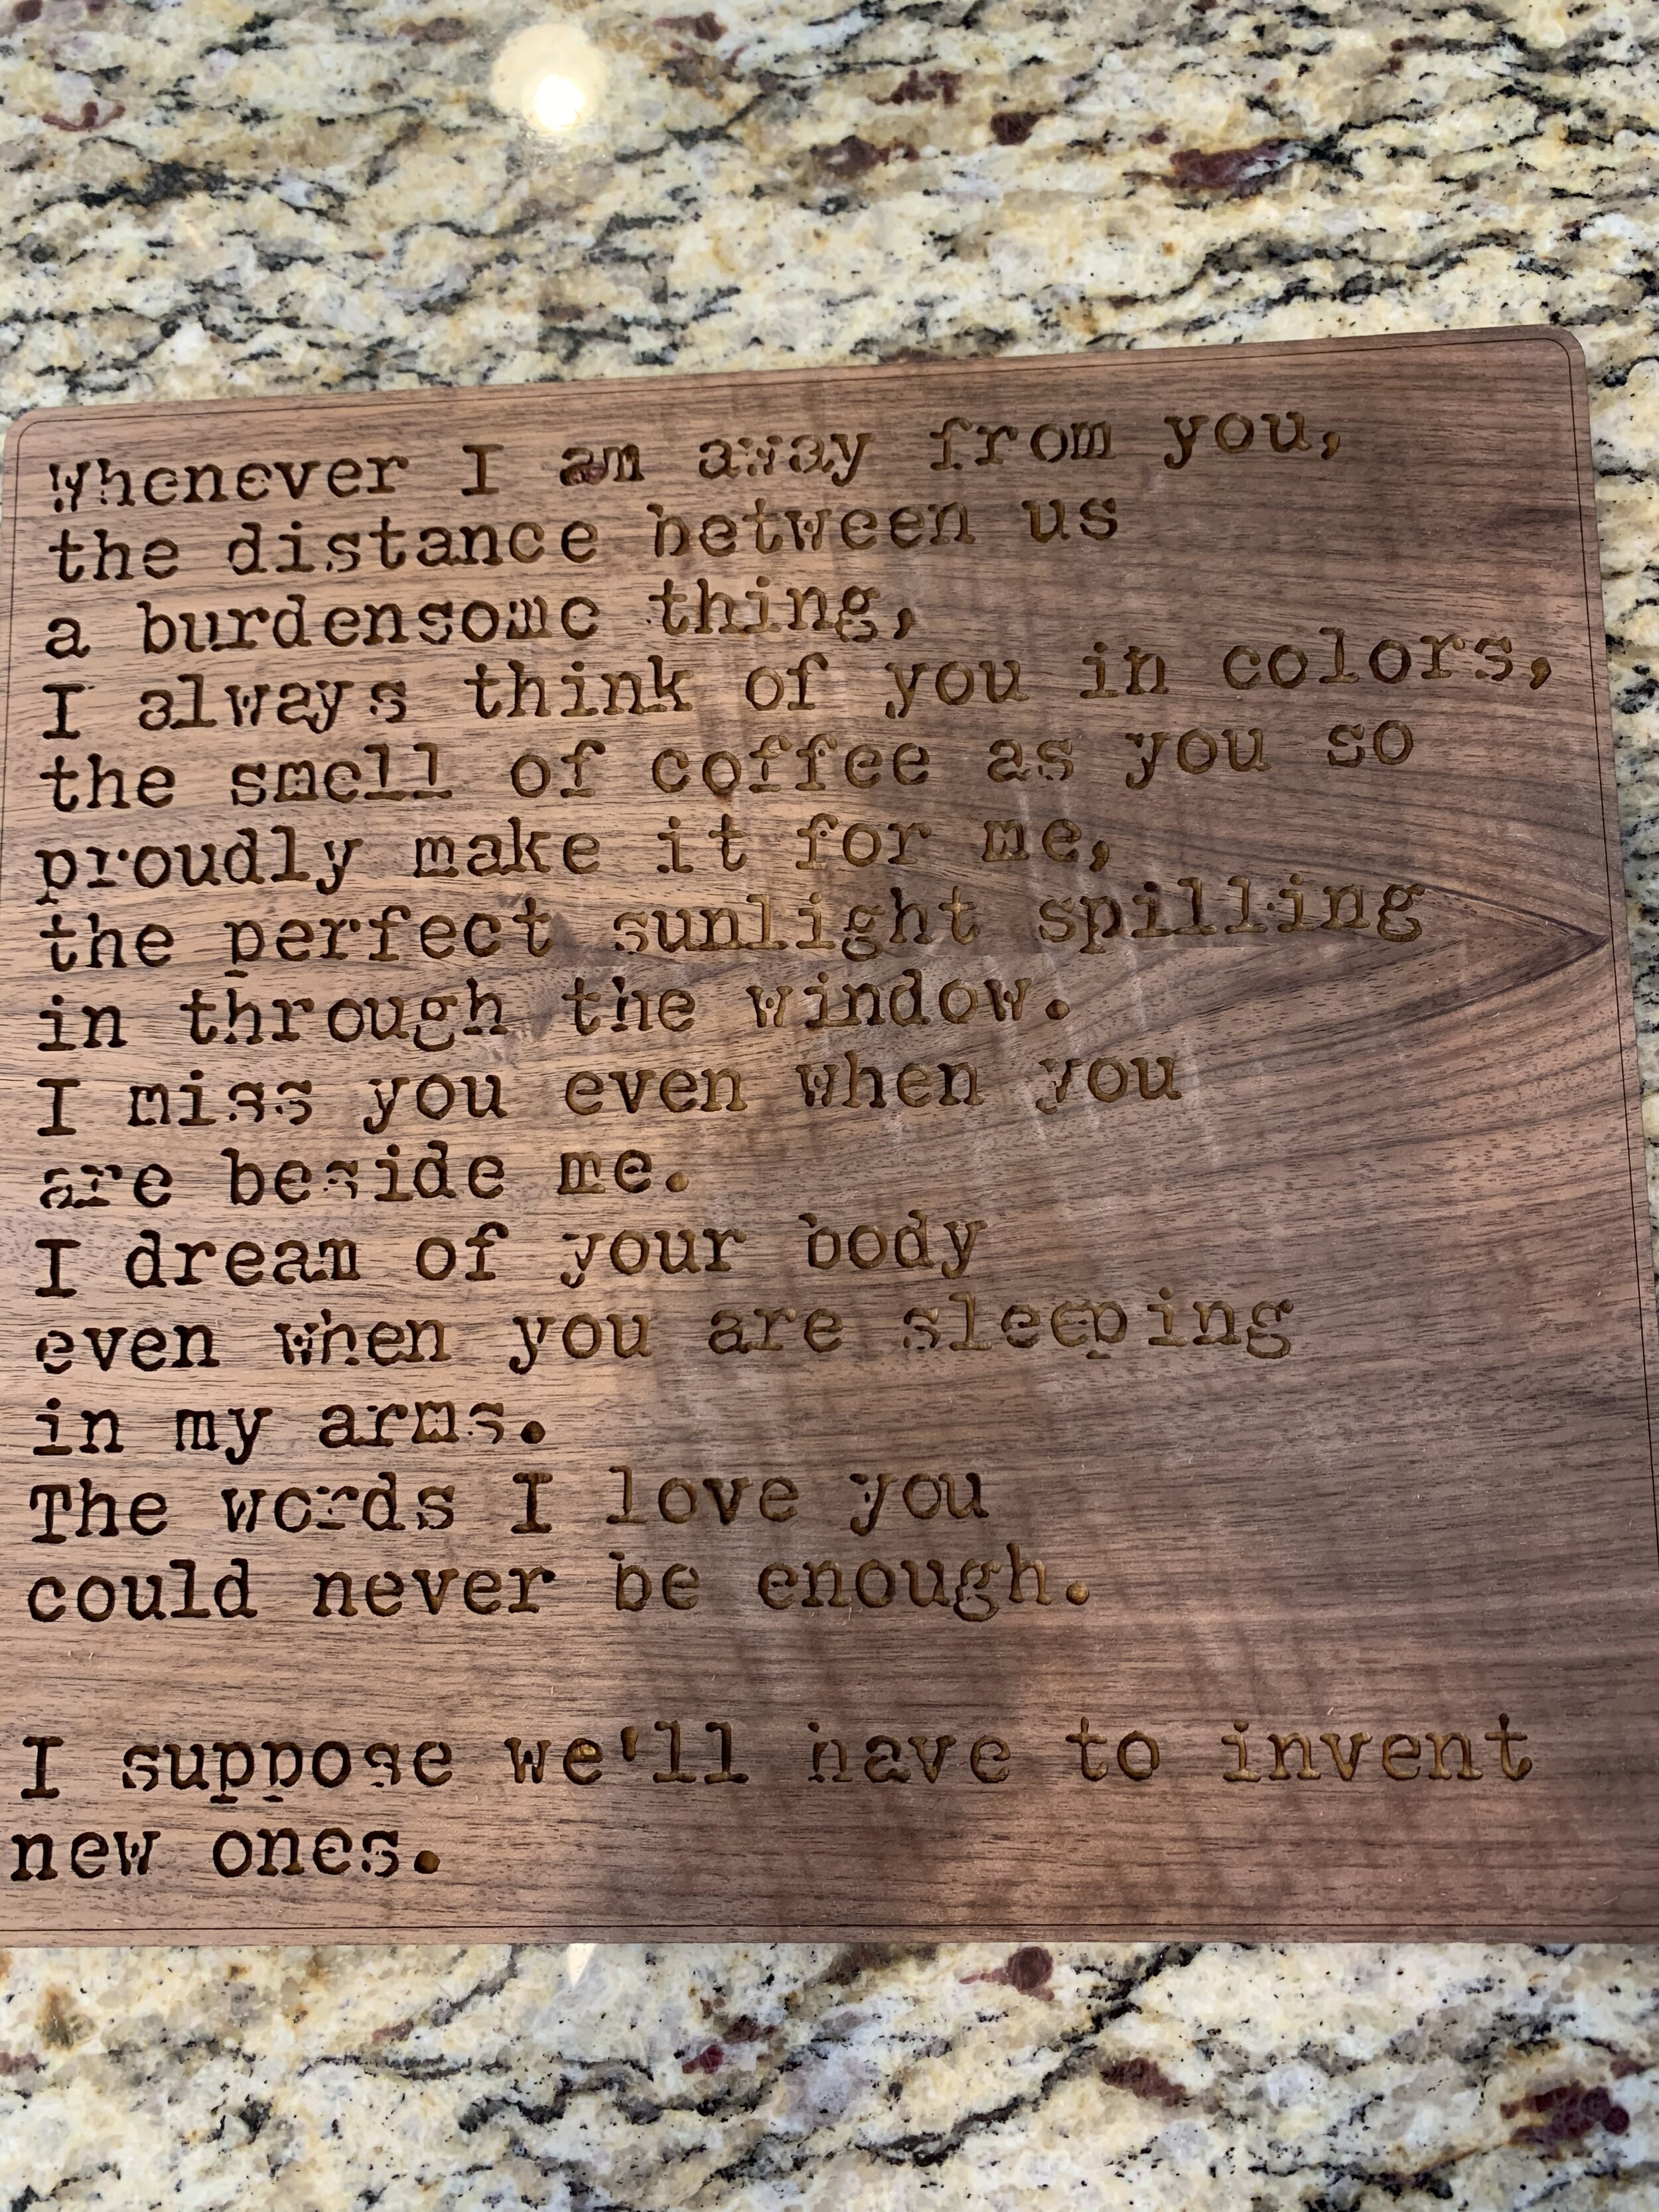 Whenever I am away from you,
the distance between us
a burdensome thing,
I always think of you in colors,
the smell of coffee as you so
proudly make it for me,
the perfect sunlight spilling
in through the window.
I miss you even when you
are beside me.
I dream of your body
even when you are sleeping
in my arms.
The words I love you
could never be enough.
I suppose we'll have to invent
new ones.